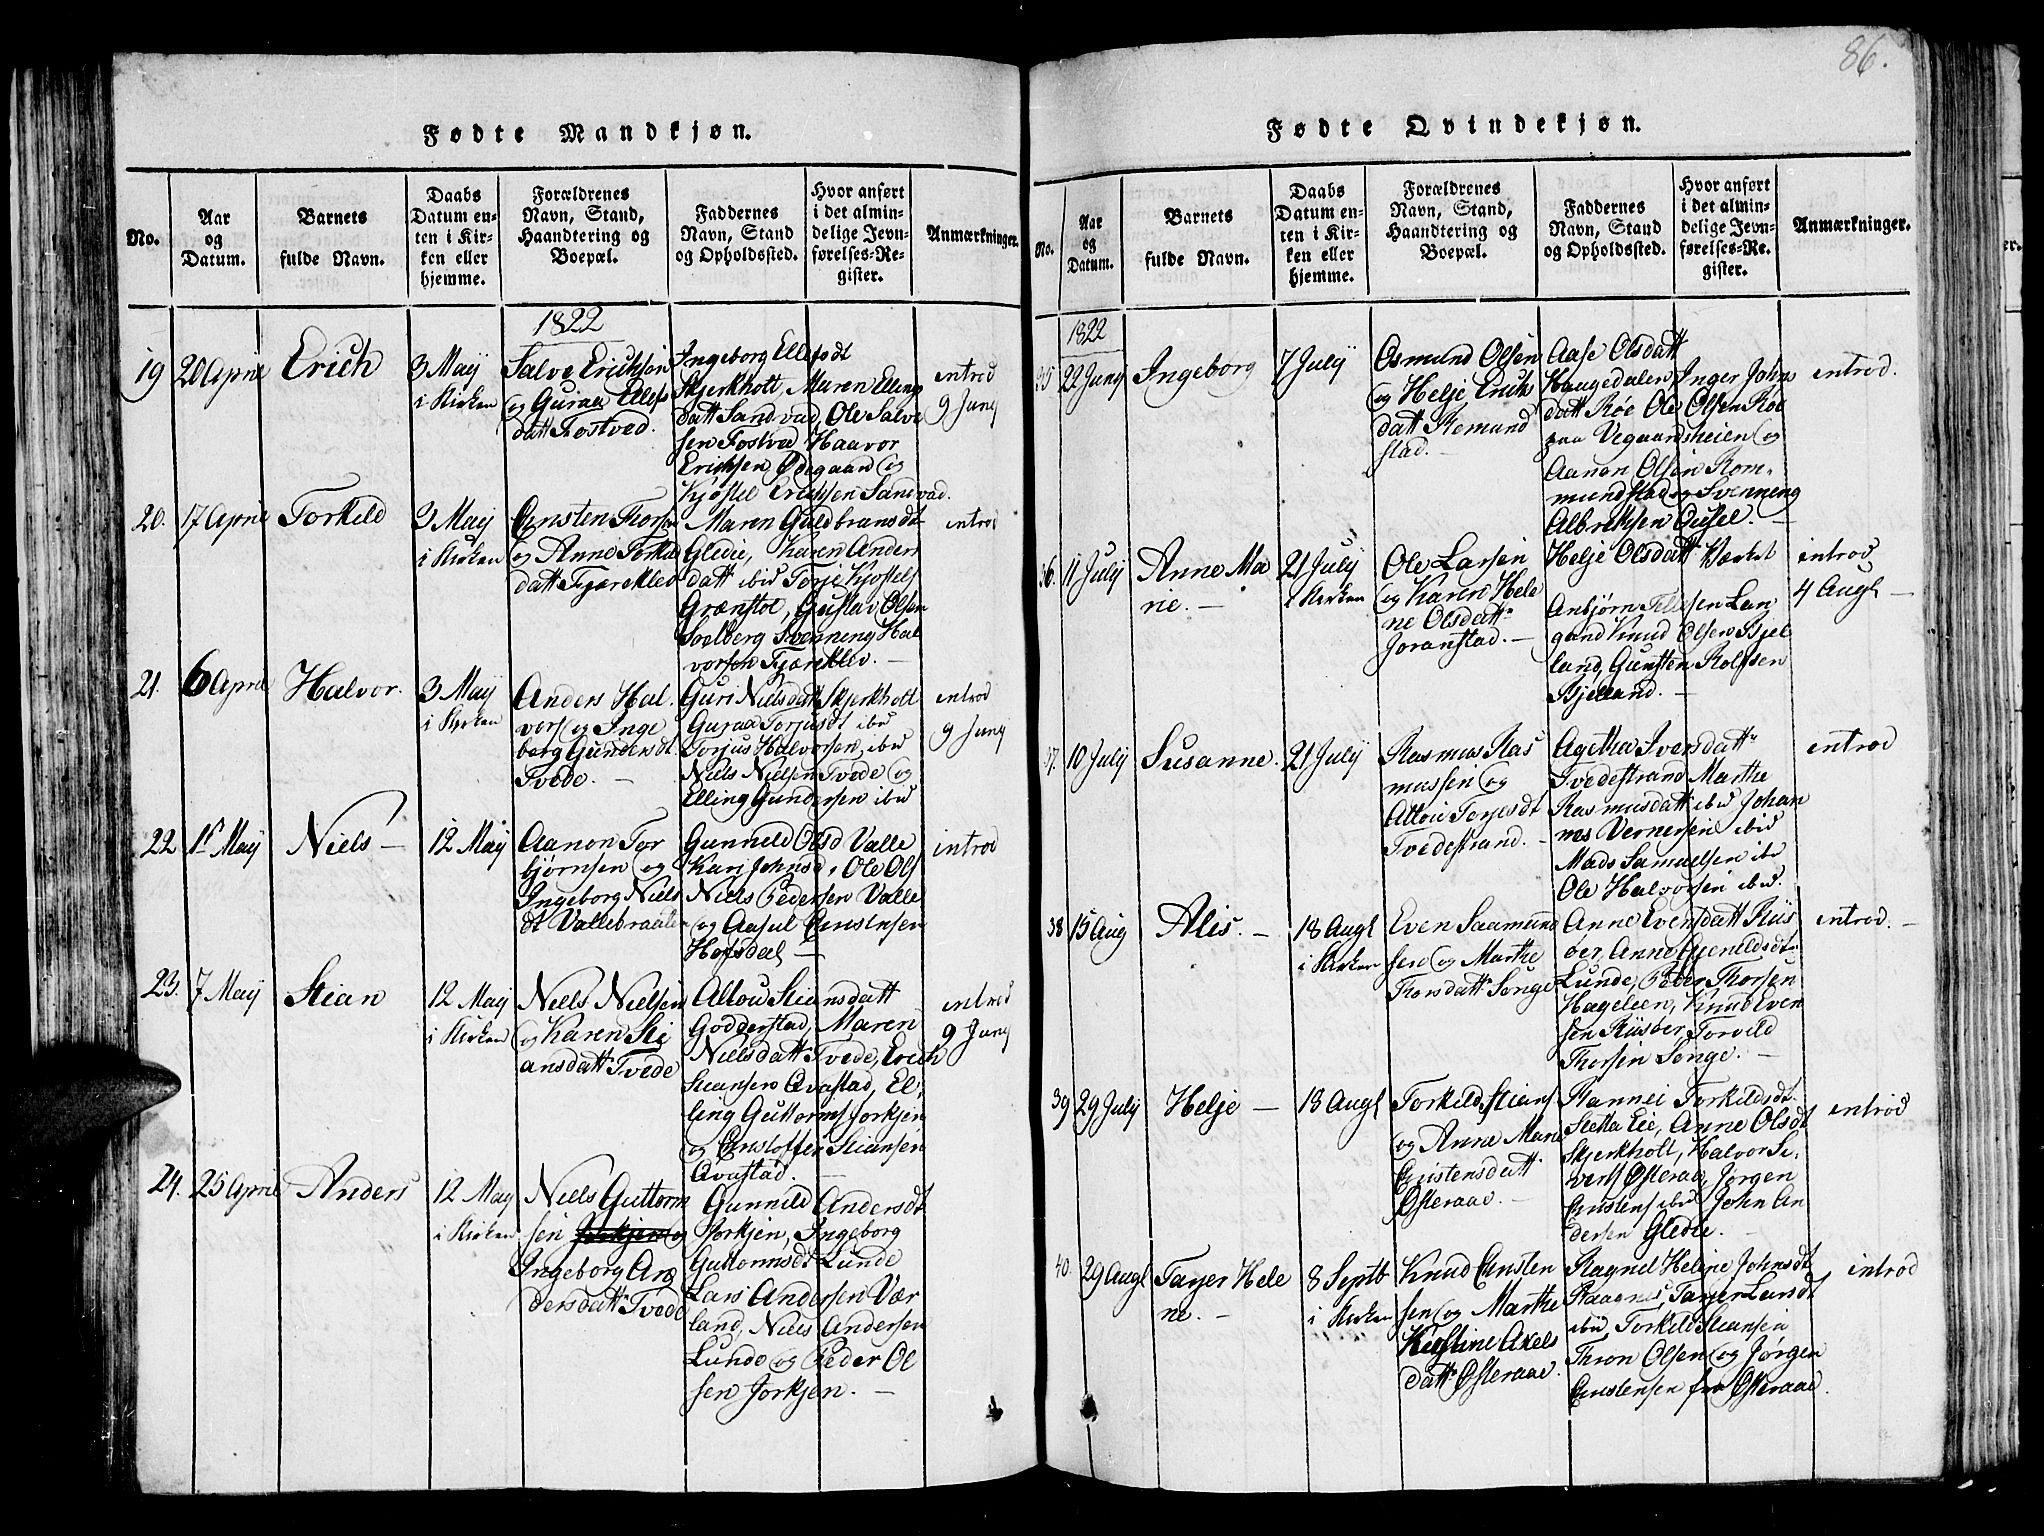 86.
Fødte Mandkjøn.
No.
Aar
og
Datum.
Barnets
fulde Navn.
Daabs
Datum en-
ten i Kir-
ken eller
hjemme.
Forældrenes
Navn, Stand,
Haandtering og
Boepæl.
Faddernes
Navn, Stand
og Opholdssted.
Hvor anført
i det almin-
delige Jevn-
førelses-Re-
gister.
Anmærkninger.
1822
19
20 April
Erich
3 Maij
i Kirken
Salve Erichsen
og Guraa Ellefs
datt Fostved.
Ingeborg Ellefsdt
Skjerkholt, Maren Elling
datt Sandvad, Ole Salve
sen Fostved Haavor
Erichsen Ødegaard og
Kjøstel Erichsen Sandvad.
introd
9 Junij
20.
17 April
Torkild
3 Maij
i Kirken
Christen Thorsen
og Anne Torkil
datt Fjæreklev
Maren Guldbransdt
Gledie, Karen Anders
datt ibid Torje Kjøstels
Grænstøl, Gustav Olsen
Solberg Svenning Hal
vorsen Fjæreklev.
introd
21.
6 April
Halvor.
3 Maij
i Kirken
Anders Hal
vors og Inge
borg Gundersdt
Tvede.
Guri Nielsdatt Skjerkholt
Guraa Torjusdt ibid
Torjus Halvorsen, ibid
Niels Nielsen Tvede og
Elling Gundersen ibid
introd
9 Junij
22
1st Maij
Niels
12 Maij
Aanon Tor
bjørnsen og
Ingeborg Niels
dt Vallebraate
Gunneld Olsd Valle
Kari Johnsd, Ole Ols
Niels Pedersen Valle
og Aasul Christensen
Hofsdal
introd
23.
7 Maij
Stian
12 Maij
i Kirken
Niels Nielsen
og Karen Sti
ansdatt Tvede
Allou Stiansdatt
Godderstad, Maren
Nielsdatt Tvede, Erich
Stiansen Qvastad, El,
ling Guttorms Jorkjen
og Christoffer Stiansen
Qvastad.
introd
9 Junij
24.
25 April
Anders
12 Maij
i Kirken
Niels Guttorm
sen Jorkjen og
Ingeborg An
dersdatt Tvede
Gunnild Andersdt
Jorkjen, Ingeborg
Guttormsdt Lunde
Lars Andersen Vær
land, Niels Andersen
Lunde og Peder Ol
sen Jorkjen.
Fødte Qvindekjøn.
No.
Aar
og
Datum.
Barnets
fulde Navn.
Daabs
Datum en-
ten i Kir-
ken eller
hjemme.
Forældrenes
Navn, Stand,
Haandtering og
Boepæl.
Faddernes
Navn, Stand
og Opholdssted.
Hvor anført
i det almin-
delige Jevn-
førelses-Re-
gister.
Anmærkninger.
1822
35
22 Junij
Ingeborg
7 Julij
Osmund Olsen
og Helje Erichs
datt Romund
stad.
Aase Olsdatt
Haugedalen Inger Johns
datt Røe Ole Olsen Røe
paa Vegaardsheien og
Aanon Olsen Rom,
mundstad og Svenning
Albrektsen Ousel.
introd.
36.
11 Julij
Anne Ma
rie.
21 Julij
i Kirken
Ole Larsen
og Karen Hele
ne Olsdatt
Joranstad.
Helje Olsdatt Værket
Anbjørn Tellefsen Lan
gand Knud Olsen Bjel
land, Gunsten Rolfsen
Bjelland.
introd
4 Augt
37.
10 Julij
Susanne.
21 Julij
Rasmus Ras
mussen og
Allou Torjesdt
Tvedestrand.
Agetha Iversdatt
Tvedestrand Marthe
Rasmusdatt ibid Johan
nes Vernersen ibid
Mads Samuelsen ibd
Ole Halvorsen ibid.
introd
38
15 Aug
Alis.
18 Augt
i Kirken
Even Saamund
sen og Marthe
Thorsdatt Songe
Anne Evensdatt Riis
øer, Anne Gjeruldsdt
Lunde, Peder Thorsen
Hageleen, Knud Even
sen Riisøer, Torvild
Thorsen Songe.
introd.
39
29 Julij
Helje
18 Augt
Torkild Stians
og Anne Marie
Christensdatt
Østeraae.
Rannei Torkildsdt
Sletta Eie, Anne Olsdt
Skjerkholt, Halvor Si,
verts Østeraae, Jørgen
Christens ibid John An
dersen Gledie.
introd
40.
29 Augt
Tarjer Hele
ne.
8 Septb
i Kirken
Knud Christen
sen og Marthe
Kirstine Axels
datt Østeraae.
Ragnil Helene Johnsdt
Raagnes, Tarjer Lundt
ibid, Torkild Stiansen
Thron Olsen og Jørgen
Christensen fra Østeraae.
introd